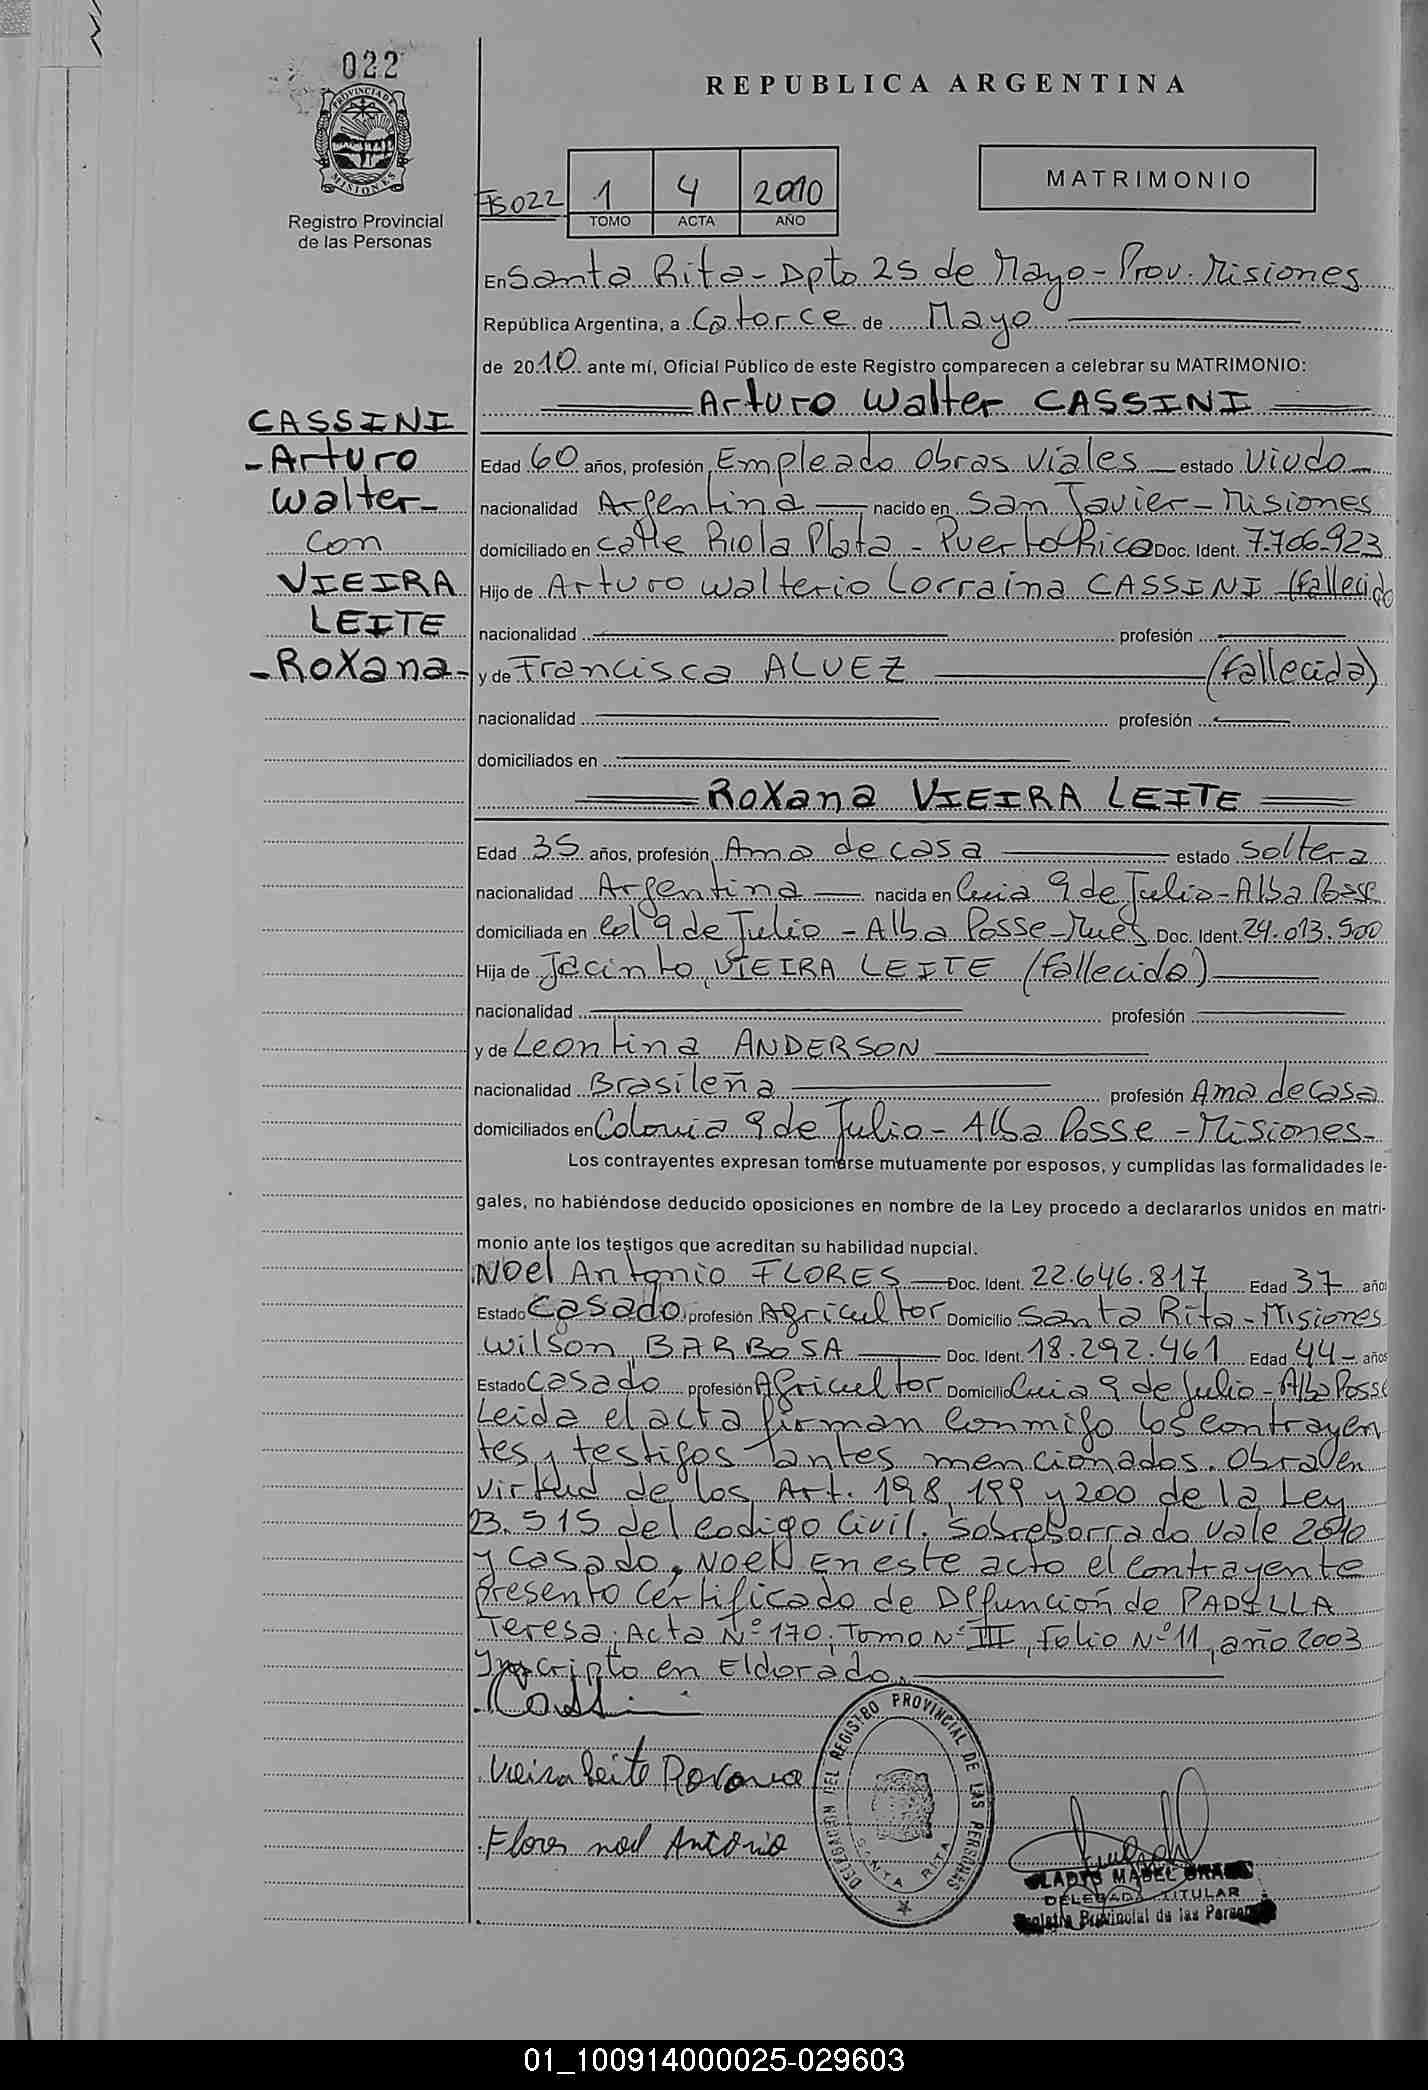 022
PROVINCIA DE
MISIONES
Registro Provincial
de las Personas
REPUBLICA ARGENTINA
MATRIMONIO
Fs022 1 4 2010
TOMO ACTA AÑO
En Santa Rita - Dpto 25 de Mayo - Prov. Misiones
República Argentina, a Catorce de Mayo
de 2010 ante mí, Oficial Público de este Registro comparecen a celebrar su MATRIMONIO:
Arturo Walter CASSINI
CASSINI
- Arturo
Walter -
con
VIEIRA
LEITE
- Roxana -
Edad 60 años, profesión Empleado Obras Viales estado Viudo
nacionalidad Argentina nacido en San Javier - Misiones
domiciliado en calle Rio la Plata - Puerto Rico Doc. Ident. 7.706.923
Hijo de Arturo Walterio Lorraina CASSINI (Fallecido
nacionalidad profesión
y de Francisca ALVEZ (Fallecida)
nacionalidad profesión
domiciliados en
Roxana VIEIRA LEITE
Edad 35 años, profesión Ama de casa estado Soltera
nacionalidad Argentina nacida en Cnia 9 de Julio - Alba Posse
domiciliada en Col 9 de Julio - Alba Posse - Mnes Doc. Ident. 24.013.500
Hija de Jacinto VIEIRA LEITE (fallecido)
nacionalidad profesión
y de Leontina ANDERSON
nacionalidad Brasileña profesión Ama de casa
domiciliados en Colonia 9 de Julio - Alba Posse - Misiones -
Los contrayentes expresan tomarse mutuamente por esposos, y cumplidas las formalidades le-
gales, no habiéndose deducido oposiciones en nombre de la Ley procedo a declararlos unidos en matri-
monio ante los testigos que acreditan su habilidad nupcial.
Noel Antonio FLORES Doc. Ident. 22.646.817 Edad 37 años
Estado Casado profesión Agricultor Domicilio Santa Rita - Misiones
Wilson BARBOSA Doc. Ident. 18.292.461 Edad 44 - años
Estado Casado profesión Agricultor Domicilio Cnia 9 de Julio - Alba Posse
Leida el acta firman conmigo los contrayen
tes y testigos antes mencionados. Obra en
virtud de los Art. 198, 199 y 200 de la Ley
23.515 del Codigo Civil. Sobreborrado vale 2010
y casado, Noel. En este acto el contrayente
presento certificado de Defunción de PADILLA
Teresa, Acta Nº 170, Tomo Nº III, Folio Nº 11, año 2003
Inscripto en Eldorado.
Cassini
Vieira Leite Roxana
Flores noel Antonio
DELEGACION DEL REGISTRO PROVINCIAL DE LAS PERSONAS
SANTA RITA
GLADYS MABEL
DELEGADA TITULAR
Registro Provincial de las Personas
01_100914000025-029603